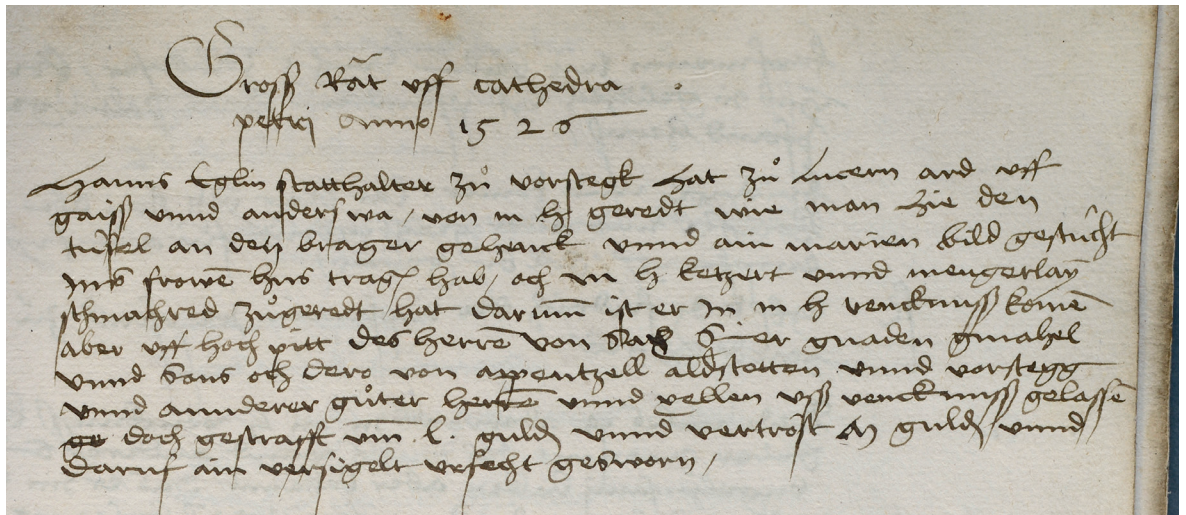 Gross Rǎt uff cathedra
petri Anno 1526
Hanns Eglin statthalter zů vorstegk hat zů Lucern ard uff
gaiss unnd anderswa, von m h geredt wie man hie den
tüfel an den brager gehenck unnd ain marien bild gestücht
ins frowē hus trag hab, och m h ketzert unnd mengerlay
schmachred zůgeredt hat darumm ist er in m h venckniss komē
aber uff hoch pitt des herrē von Sax Sier gnaden gmahel
unnd Sons och dero von appentzell aldstetten unnd vorstegg
unnd annderer gůter herrē unnd vellen uss venckniss gelassē
doch gestrafft um .l. guld unnd vertröst guld unnd
daruf ain versigelt urfecht gesworn,